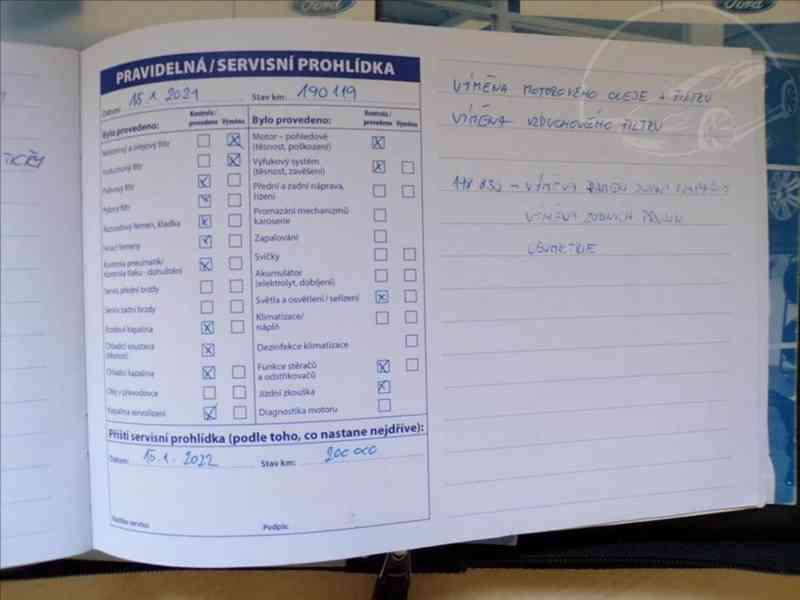 Ford
Ford
PRAVIDELNÁ / SERVISNÍ PROHLÍDKA
Datum: 15.1.2021 Stav km: 190119
Bylo provedeno: Kontrola / provedeno Výměna
Motorový a olejový filtr
Vzduchový filtr
Palivový filtr
Pylový filtr
Rozvodový řemen, kladka
Hnací řemeny
Kontrola pneumatik/
Kontrola tlaku - dohuštění
Servis přední brzdy
Servis zadní brzdy
Brzdová kapalina
Chladící soustava
(těsnost)
Chladící kapalina
Olej v převodovce
Kapalina servořízení
Bylo provedeno: Kontrola / provedeno Výměna
Motor – pohledově
(těsnost, poškození)
Výfukový systém
(těsnost, zavěšení)
Přední a zadní náprava,
řízení
Promazání mechanizmů
karoserie
Zapalování
Svíčky
Akumulátor
(elektrolyt, dobíjení)
Světla a osvětlení / seřízení
Klimatizace/
náplň
Dezinfekce klimatizace
Funkce stěračů
a odstřikovačů
Jízdní zkouška
Diagnostika motoru
Příští servisní prohlídka (podle toho, co nastane nejdříve):
Datum: 15.1.2022 Stav km: 200 000
Razítko servisu: Podpis:
VÝMĚNA MOTOROVÉHO OLEJE + FILTRU
VÝMĚNA VZDUCHOVÉHO FILTRU
VÝMĚNA RAMEN
VÝMĚNA ZADNÍCH PRUŽIN
GEOMETRIE